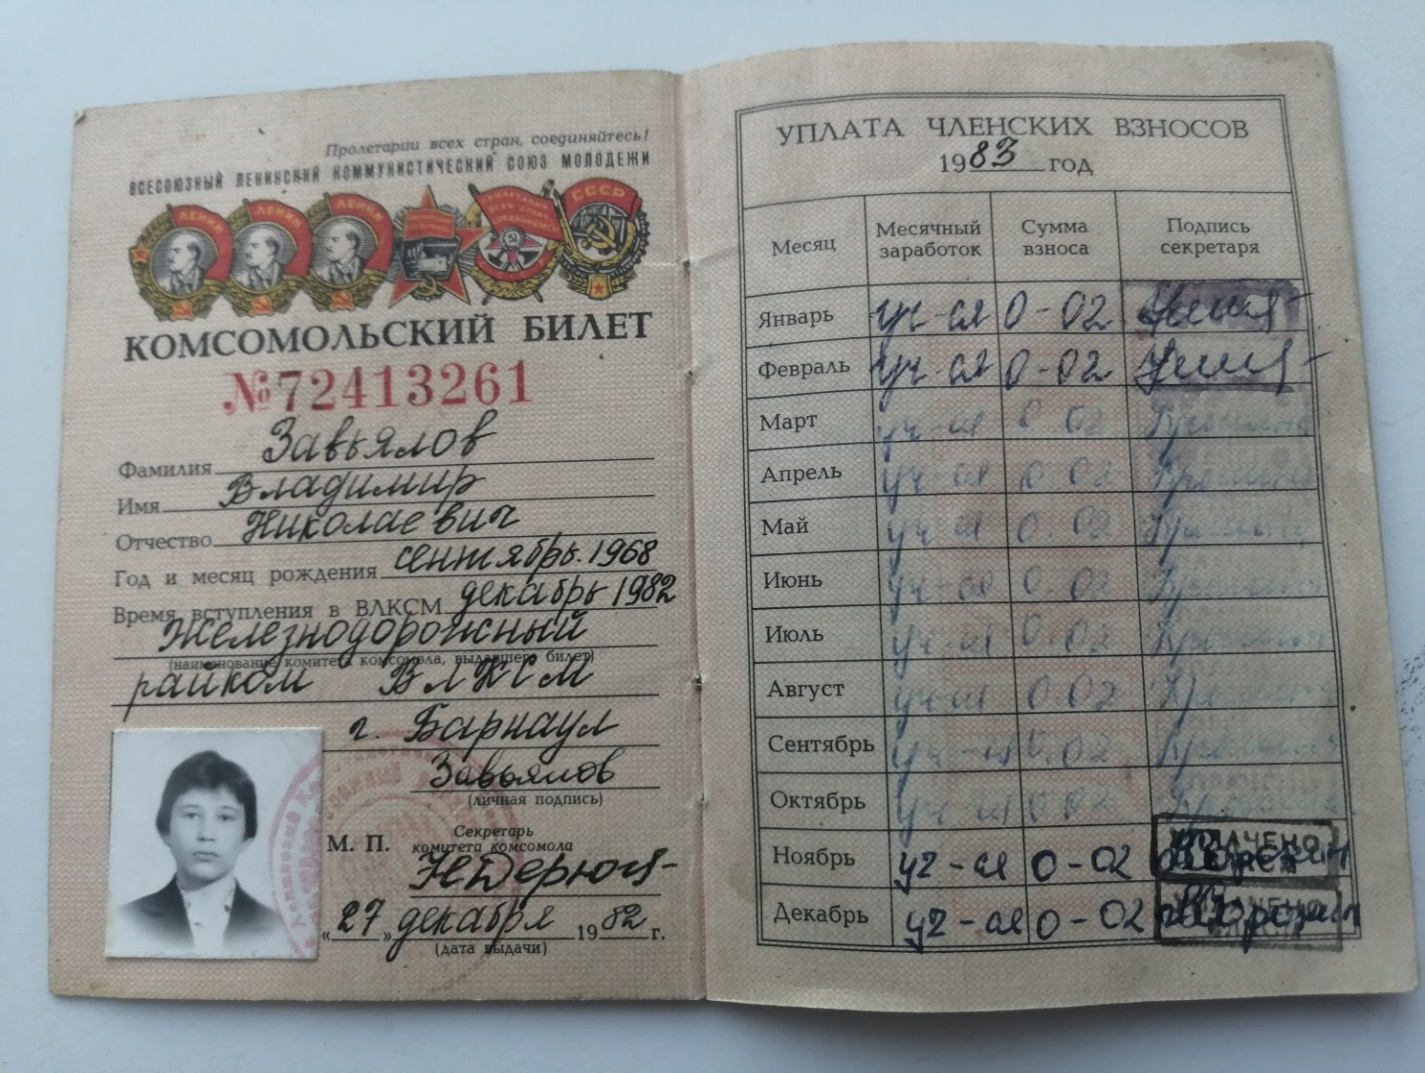 Пролетарии всех стран, соединяйтесь!
ВСЕСОЮЗНЫЙ ЛЕНИНСКИЙ КОММУНИСТИЧЕСКИЙ СОЮЗ МОЛОДЕЖИ
ЛЕНИН ЛЕНИН ЛЕНИН СССР
КОМСОМОЛЬСКИЙ БИЛЕТ
№72413261
Фамилия Завьялов
Имя Владимир
Отчество Николаевич
Год и месяц рождения сентябрь 1968
Время вступления в ВЛКСМ декабрь 1982
Железнодорожный
(наименование комитета комсомола, выдавшего билет)
райком ВЛКСМ
г. Барнаул
Завьялов
(личная подпись)
М. П. Секретарь
комитета комсомола
«27» декабря 1982 г.
(дата выдачи)
УПЛАТА ЧЛЕНСКИХ ВЗНОСОВ
1983 год
Месяц Месячный заработок Сумма взноса Подпись секретаря
Январь уч-ся 0-02
Февраль уч-ся 0-02
Март уч-ся 0-02
Апрель уч-ся 0-02
Май уч-ся 0-02
Июнь уч-ся 0-02
Июль уч-ся 0-02
Август уч-ся 0-02
Сентябрь уч-ся 0-02
Октябрь уч-ся 0-02
Ноябрь уч-ся 0-02 УПЛАЧЕНО
Декабрь уч-ся 0-02 УПЛАЧЕНО